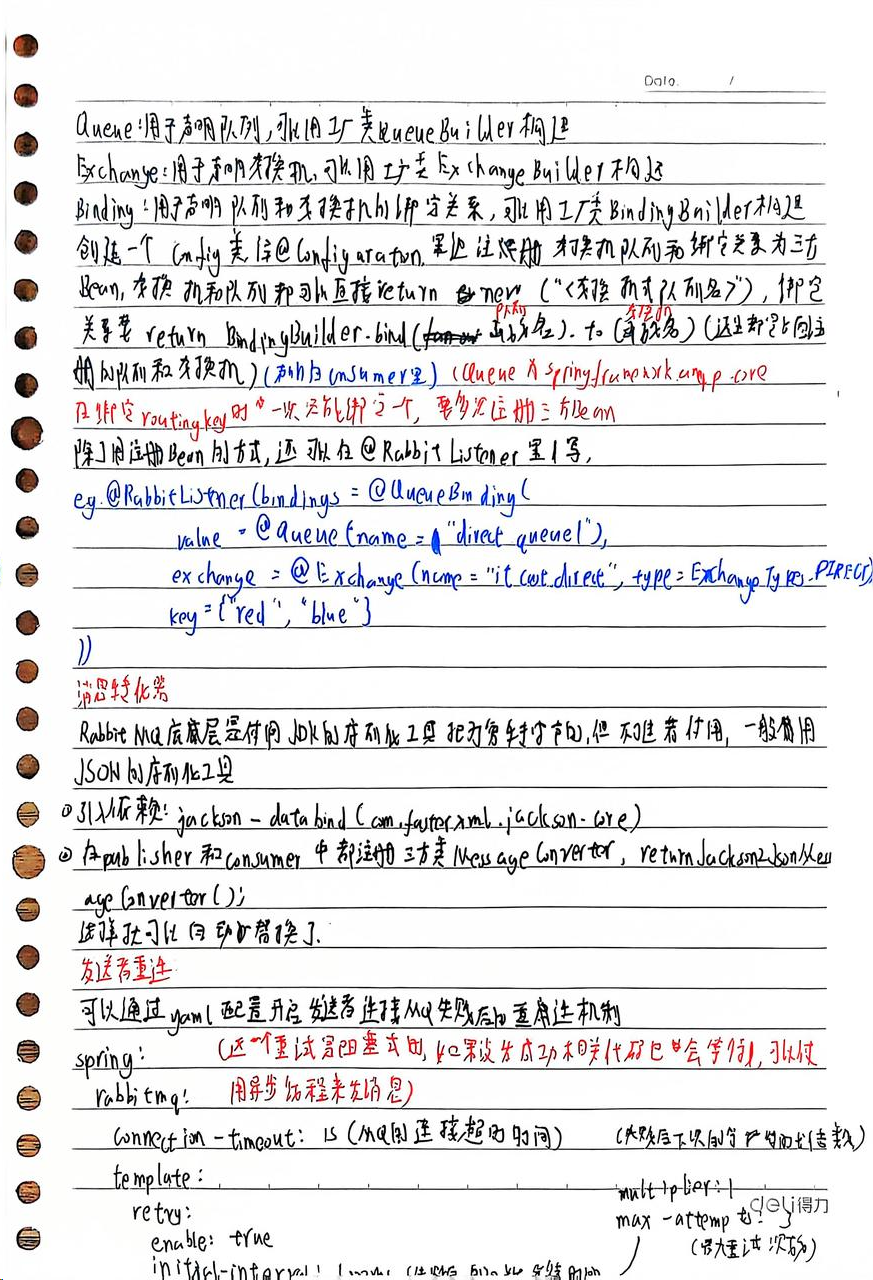 Date. /
Queue:用于声明队列,可以用工厂类QueueBuilder构建
Exchange:用于声明交换机,可以用工厂类ExchangeBuilder构建
Binding:用于声明队列和交换机的绑定关系,可以用工厂类BindingBuilder构建
创建一个Config类 @Configuraton,里边注册 交换机队列和绑定关系为三方
Bean,交换机和队列都可以直接return new ("<交换机或队列名>"),绑定
队列 交换机
关系要 return BindingBuilder.bind(函数名).to(函数名)(这里都是上面注
册的队列和交换机)(声明在consumer里)(Queue为springframework.amqp.core
在绑定routingkey时 一次只能绑定一个,要多次注册三方Bean
除了用注册Bean的方式,还可以在@RabbitListener里写,
eg.@RabbitListener(bindings = @QueueBinding(
value = @Queue(name = "direct queue1"),
exchange = @Exchange(name = "itcast.direct", type = ExchangeTypes.DIRECT),
key = {"red", "blue"}
))
消息转化器
RabbitMQ底层是使用JDK的序列化工具把对象转字节的,但不推荐使用,一般使用
JSON的序列化工具
①引入依赖: jackson-databind(com.fasterxml.jackson-core)
②在publisher和consumer中都注册三方类MessageConvertor, return Jackson2JsonMess
ageConvertor();
这样就可以自动 替换了.
发送者重连
可以通过yaml配置开启发送者连接MQ失败后的重连机制
spring: (这个重试是阻塞式的,如果没发成功相关代码也会等待,可以使
rabbitmq: 用异步线程来发消息)
connection-timeout: 1s (MQ的连接超时时间) (失败后下次的等待时长倍数)
template:
multiplier: 1
deli得力
retry:
max-attempts: 3
enable: true
(最大重试次数)
initial-interval: